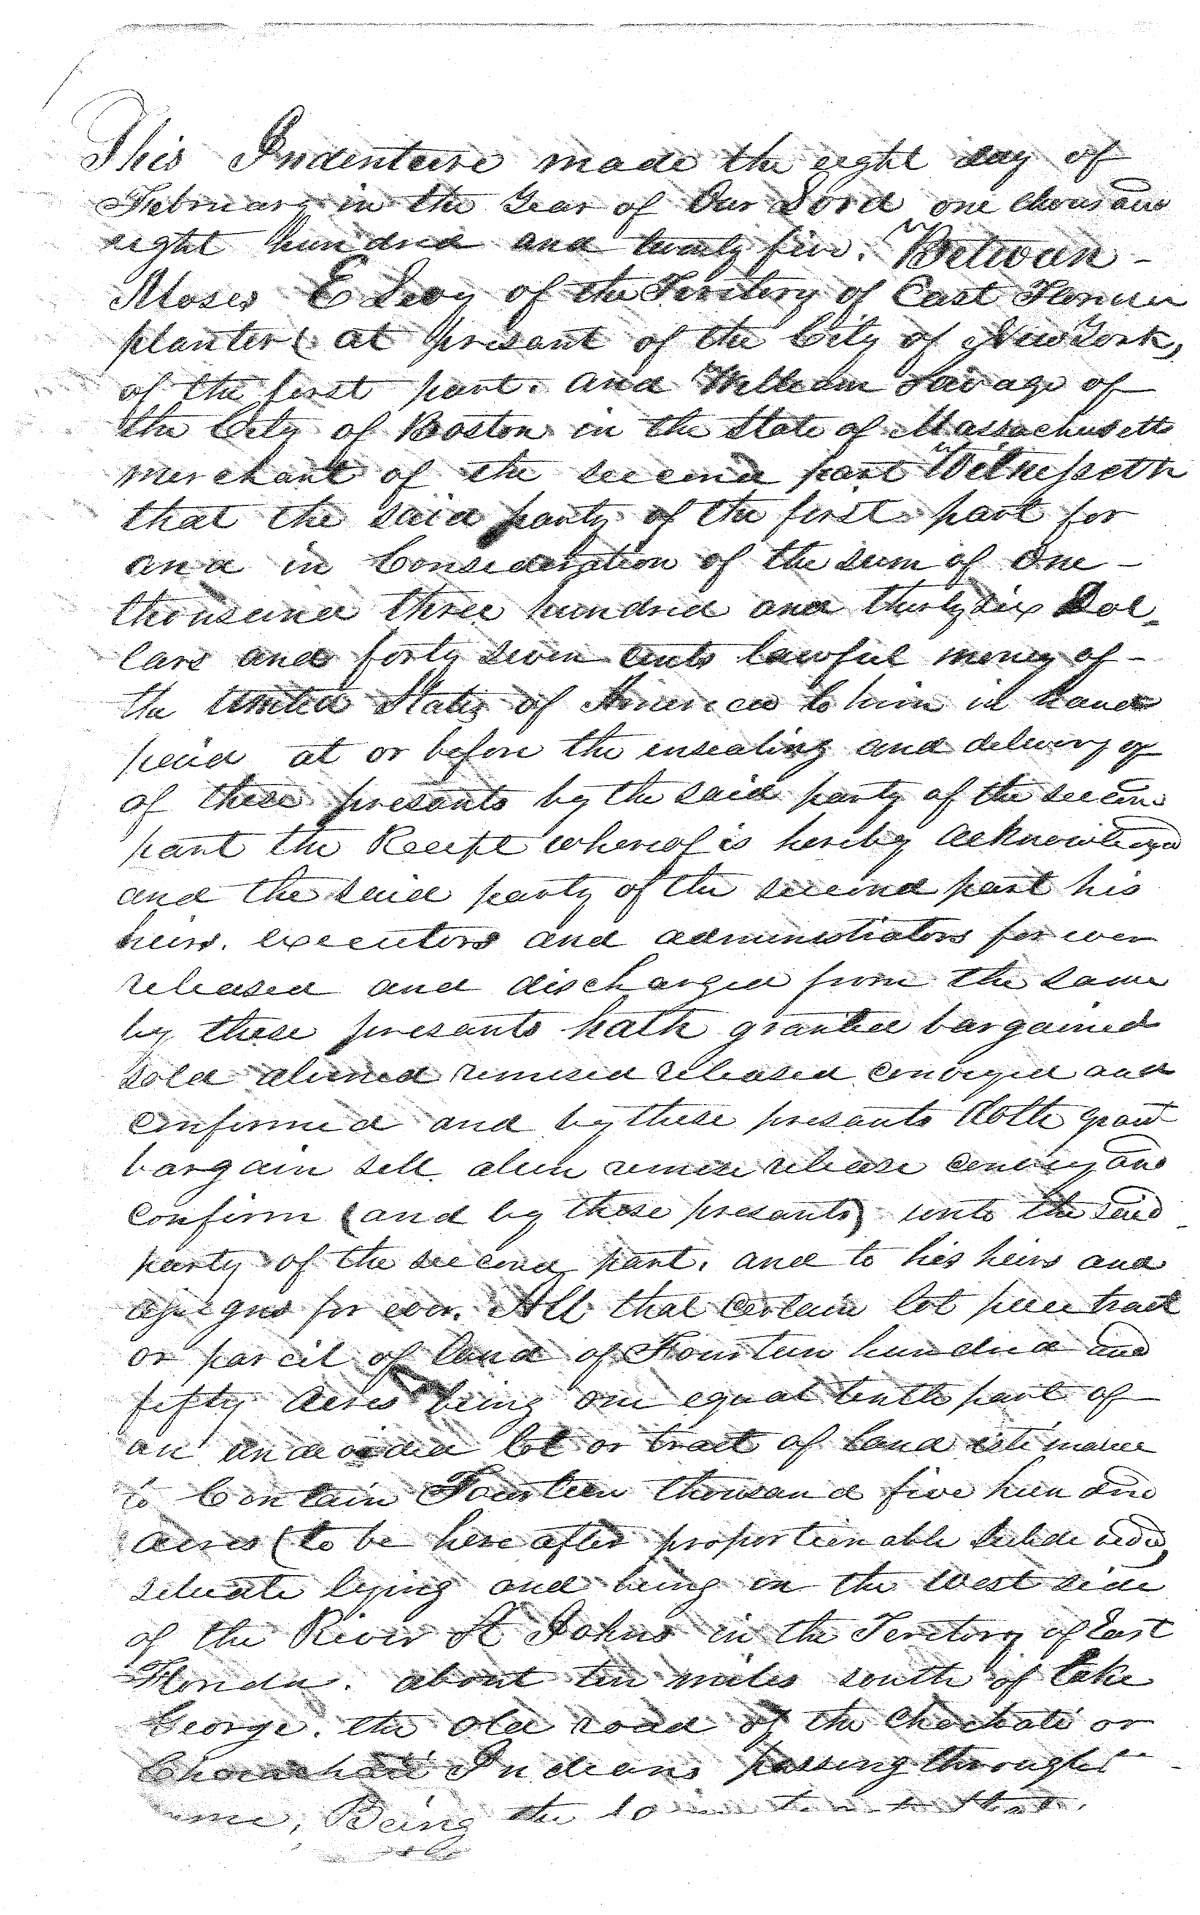 This Indenture made the eight day of
February in the Year of Our Lord one thousand
eight hundred and twenty five. Between -
Moses E Levy of the Territory of East Florida
planter (at present of the City of New York,
of the first part. and William Savage of
the City of Boston in the State of Massachusetts
merchant of the second part Witnesseth
that the said party of the first part for
and in Consideration of the sum of One -
thousand three hundred and thirty six Dol-
lars and forty seven cents lawful money of -
the United States of America to him in hand
paid at or before the ensealing and delivery of
of these presants by the said party of the second
part the Receipt whereof is hereby acknowledged
and the said party of the second part his
heirs. executors and administrators for ever
released and discharged from the same
by these presants hath granted bargained
sold aliened remised released conveyed and
confirmed and by these presants doth grant
bargain sell alien remise release convey and
confirm (and by these presants) unto the said
party of the second part. and to his heirs and
assigns for ever. All that certain lot peice tract
or parcil of land of Fourteen hundred and
fifty acres being one equal tenth part of
an undevided lot or tract of land estimated
to Contain Fourteen thousand five hundred
acres (to be here after proportionable subdevided)
situate lying and being on the west side
of the River St Johns in the Territory of East
Florida. about ten miles south of lake
George. the old road of the or
Indians passing through
Being the